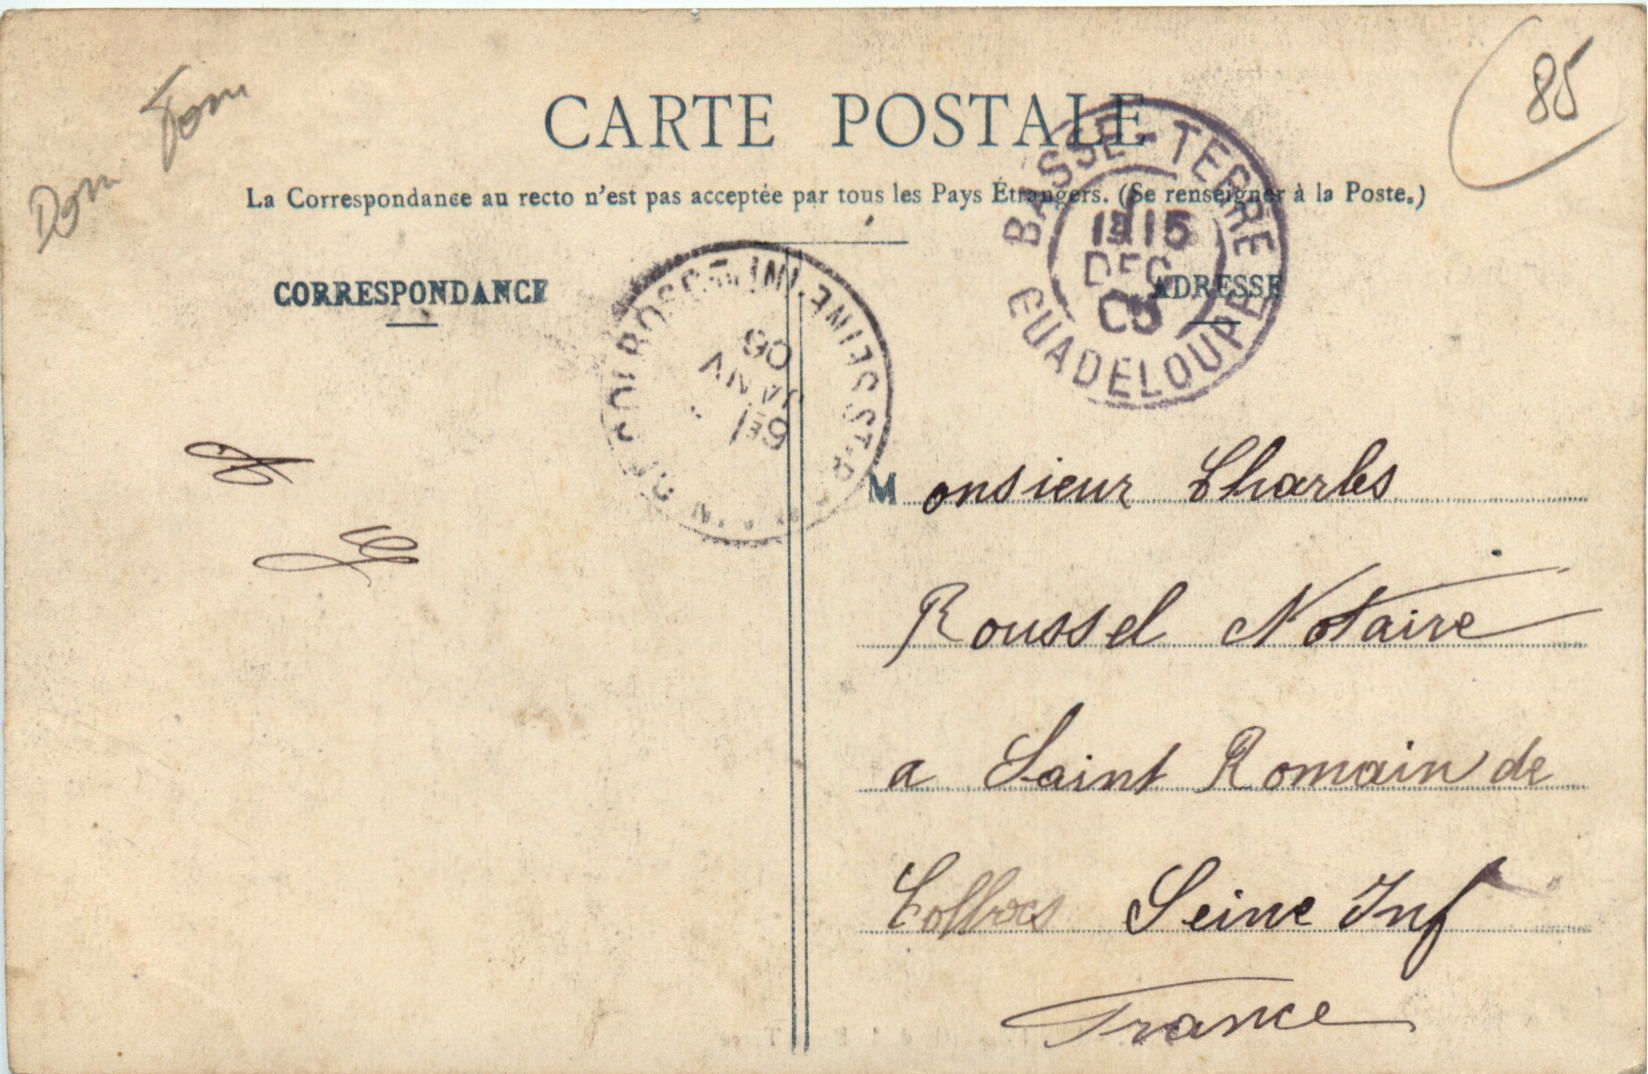 Dom Tom
85
CARTE POSTALE
La Correspondance au recto n'est pas acceptée par tous les Pays Étrangers. (Se renseigner à la Poste.)
CORRESPONDANCE
ADRESSE
BASSE-TERRE
15
DEC
05
GUADELOUPE
SEINE-INF
6E
JANV
06
Monsieur Charles
Roussel Notaire
a Saint Romain de
Colbocs Seine Inf
France